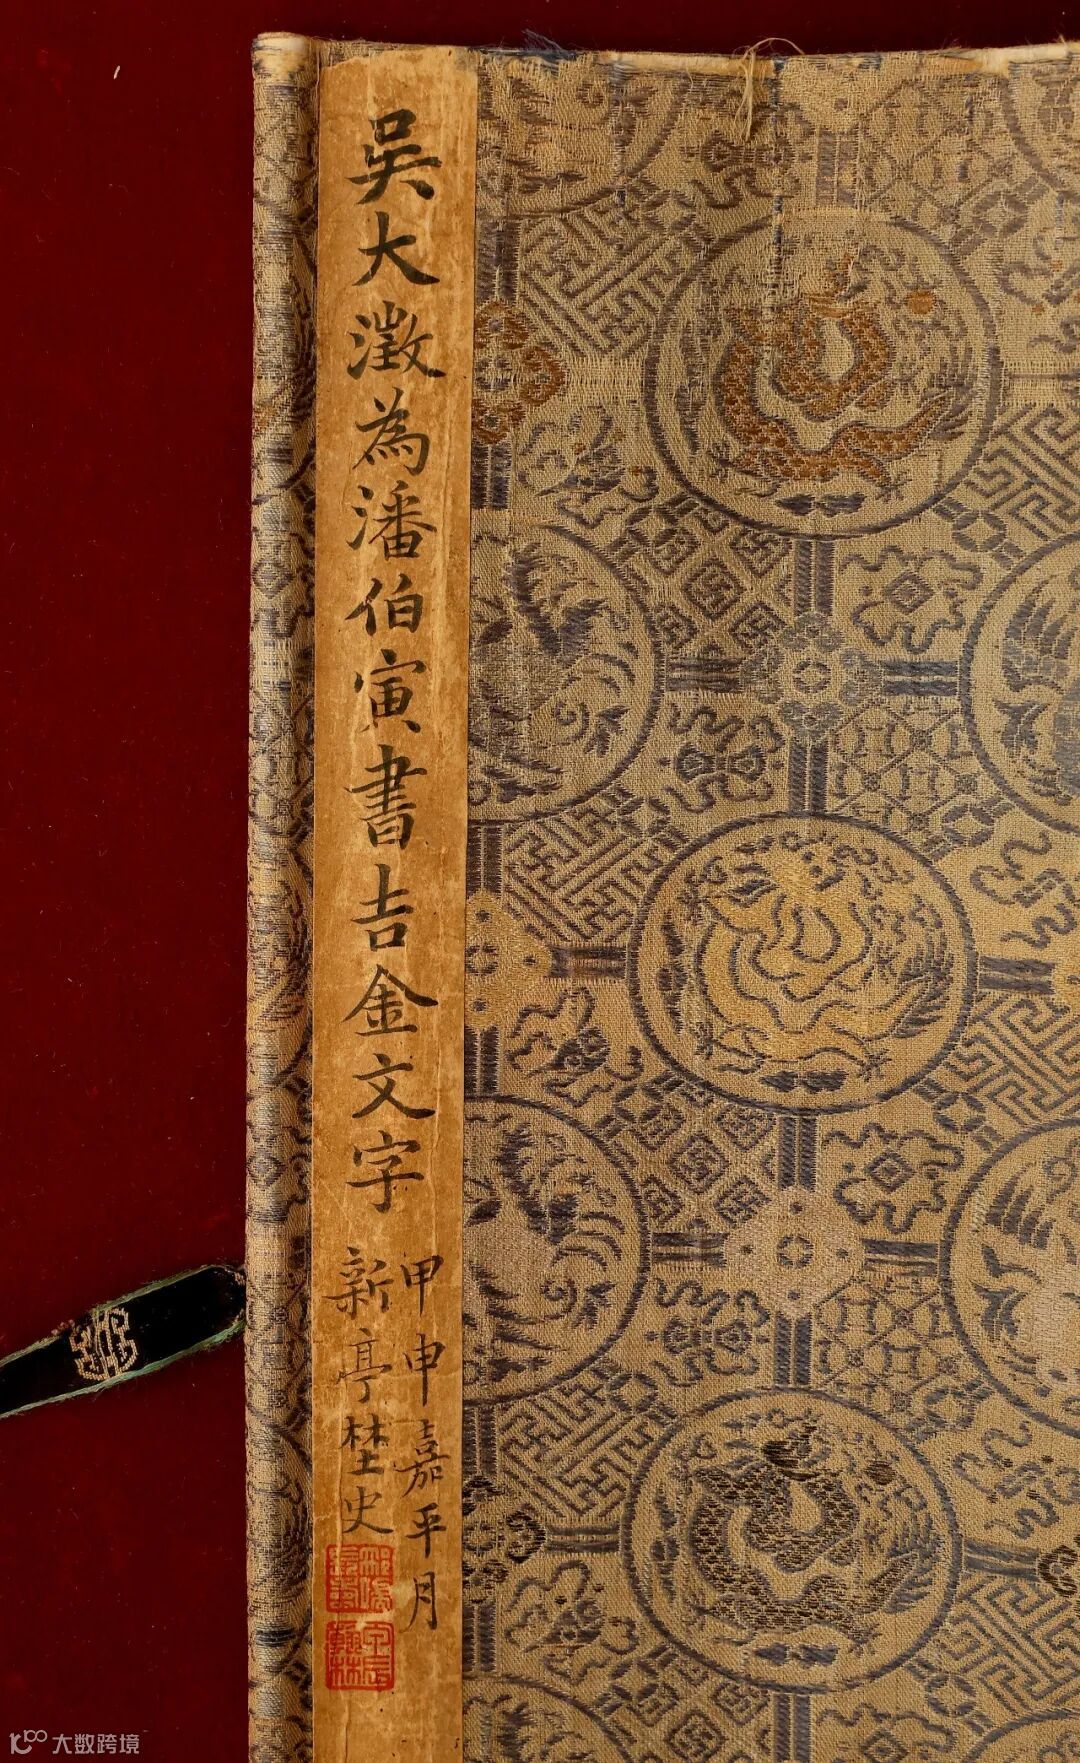 吳大澂為潘伯寅書吉金文字
甲申嘉平月
新亭埜史
大数跨境